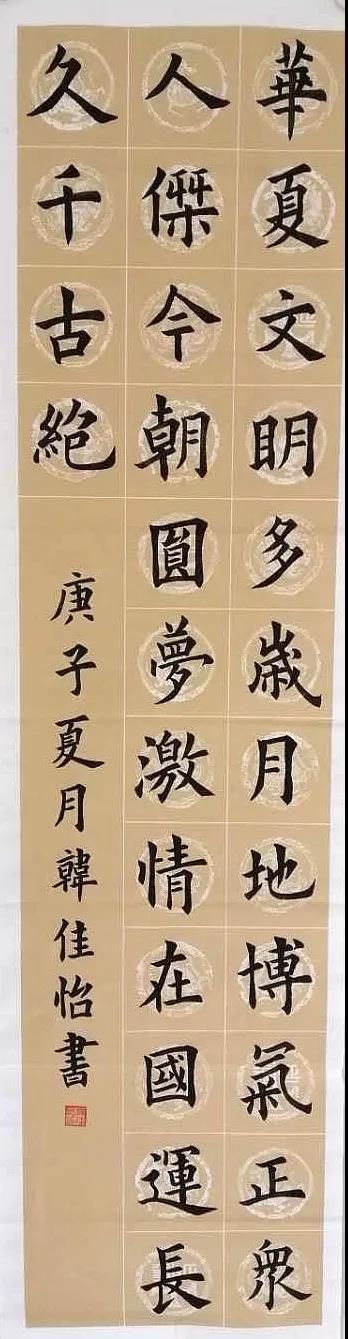 華夏文明多歲月地博氣正衆
人傑今朝圓夢激情在國運長
久千古絕
庚子夏月韓佳怡書